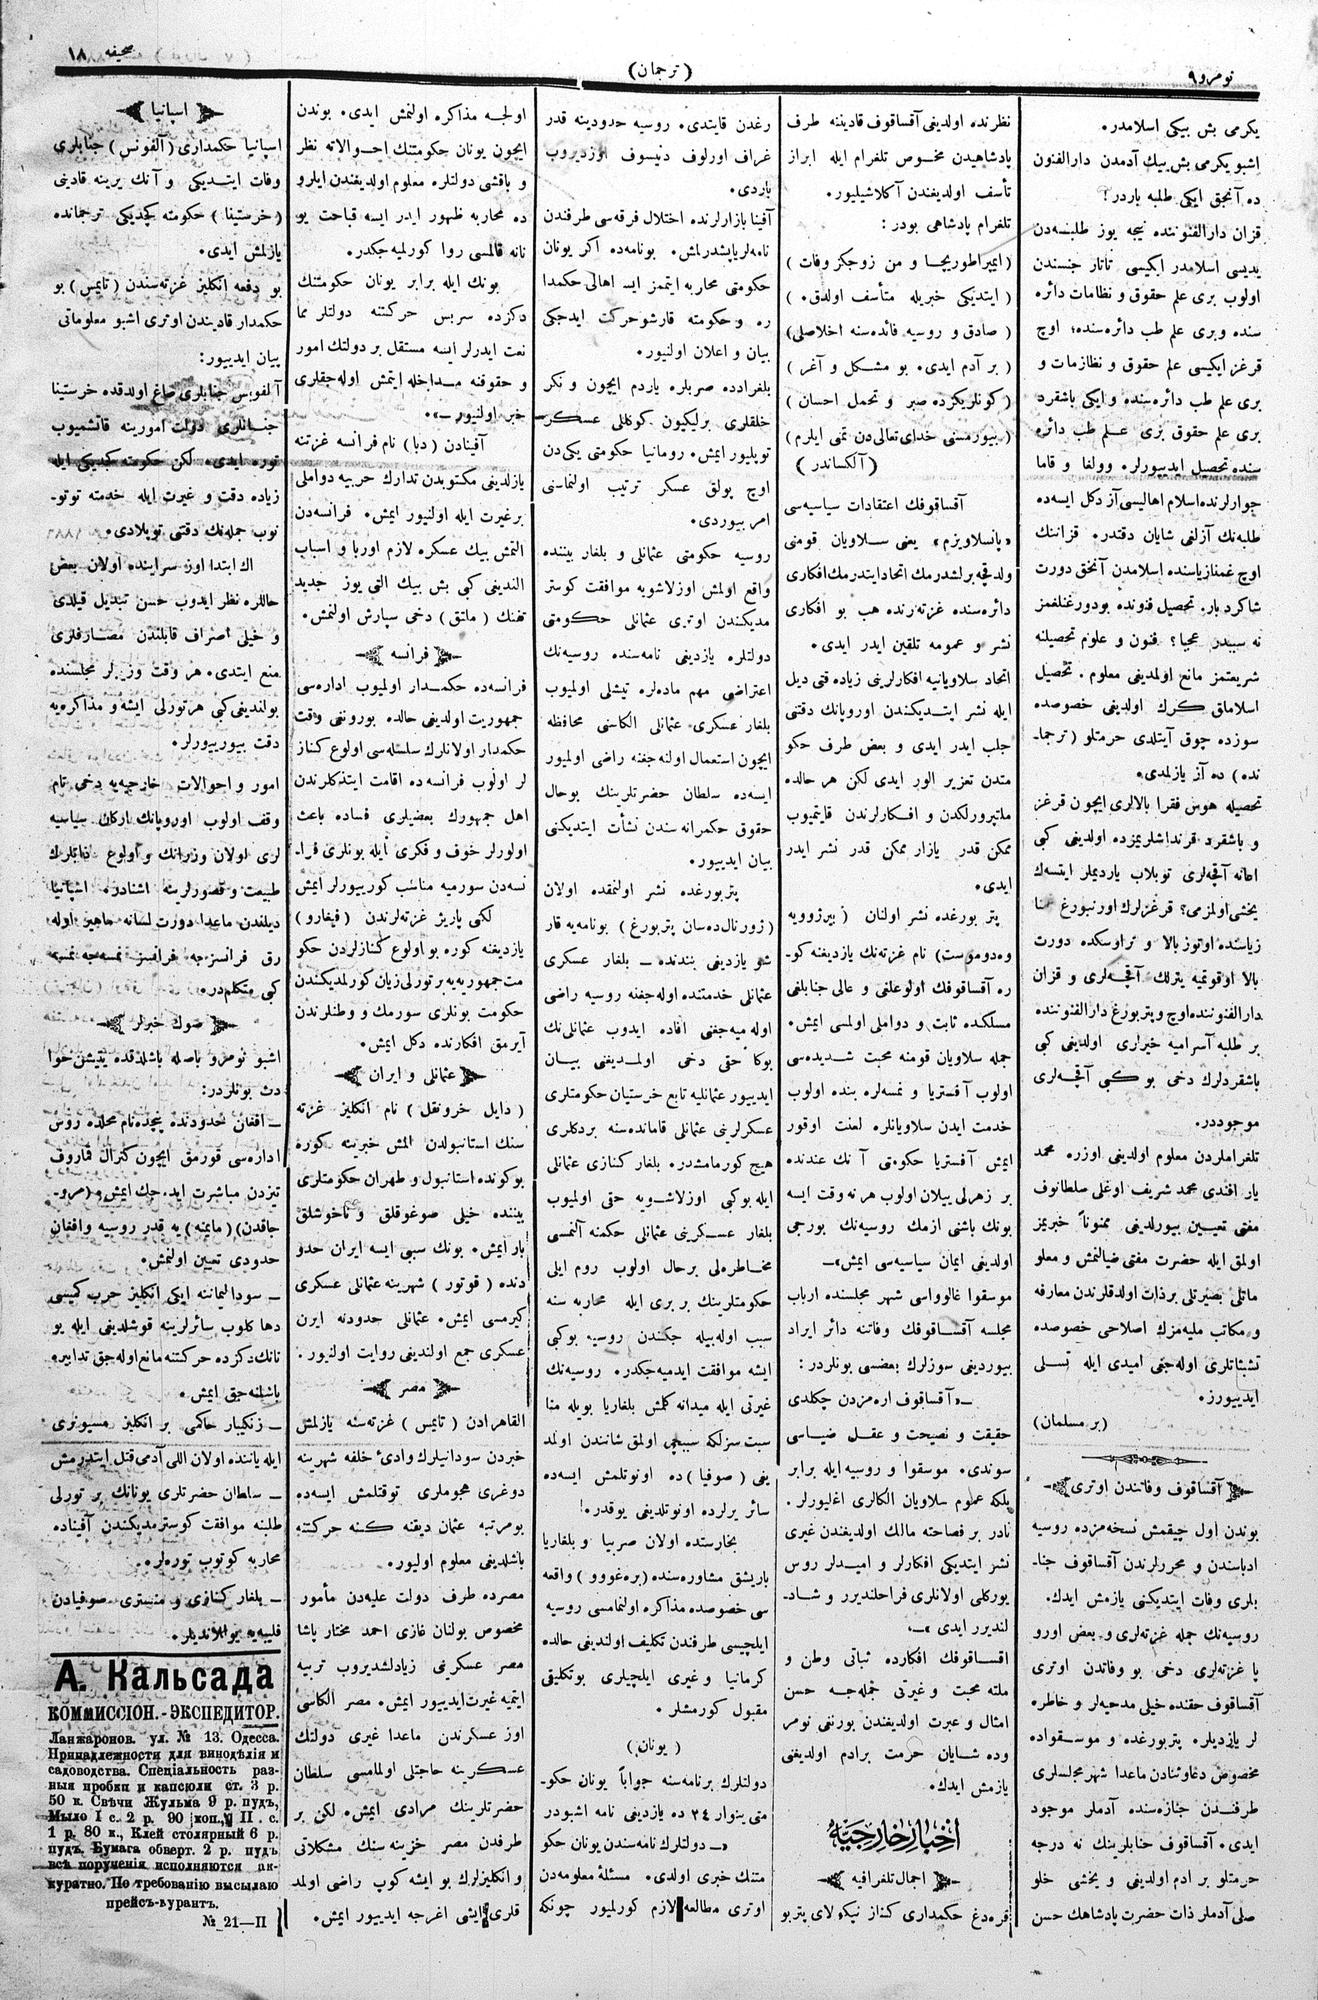 نومرو ٩
(ترجمان)
صحيفه ١٨
يكرمى بش بيكى اسلامدر.
اشبو يكرمى بش بيك آدمدن دارالفنون
ده آنجق ايكى طلبه باردر!
قزان دارالفنوننده نيجه يوز طلبه‌دن
يديسى اسلامدر ايكيسى تاتار جنسندن
اولوب برى علم حقوق و نظامات دائره
سنده وبرى علم طب دائره سنده؛ اوچ
قرغز ايكيسى علم حقوق و نظازمات و
برى علم طب دائره سنده و ايكى باشقرد
برى علم حقوق برى علم طب دائره
سنده تحصيل ايديبورلر. وولغا و قاما
جوارلرنده اسلام اهاليسى آز دكل ايسه‌ده
طلبه‌نك آزلغى شايان دقتدر. قزاننك
اوچ غمنازياسنده اسلامدن آنجق دورت
شاكرد بار. تحصيل فنونده بودورغنلغمز
نه سببدن عجبا؟ فنون و علوم تحصيلنه
شريعتمز مانع اولمديغى معلوم. تحصيل
اسلاماق كرك اولديغى خصوصده
سوزده چوق آيتلدى حرمتلو (ترجما-
نده) ده آز يازلمدى.
تحصيله هوس فقرا بالالرى ايچون قرغز
و باشقرد قرنداشلريمزده اولديغى كبى
اعانه آقچه‌لرى توبلاب ياردملر ايتسه‌ك
يخشى اولمزمى؟ قرغزلرك اورنبورغ غمنا
زياسنده اوتوز بالا و تراوسكده دورت
بالا اوقوتميه يترلك آقچه‌لرى و قزان
دارالفنوننده اوچ و پتربورغ دارالفنوننده
بر طلبه آسراميه خيرارى اولديغى كبى
باشقردلرك دخى بو كبى آقچه‌لرى
موجوددر.
تلغراملردن معلوم اولديغى اوزره محمد
يار افندى محمد شريف اوغلى سلطانوف
مفتى تعيين بيورلديغى ممنوناً خبريمز
اولمق ايله حضرت مفتى ضيالنمش و معلو
ماتلى بصيرتلى برذات اولدقلرندن معارفه
و مكاتب مليه‌مزك اصلاحى خصوصده
تشبثاتلرى اوله‌جغى اميدى ايله تسلى
ايديبورز.
(بر مسلمان)
آقساقوف وفاتندن اوترى
بوندن اول چيقمش نسخه‌مزده روسيه
ادباسندن و محررلرندن آقساقوف جنا-
بلرى وفات ايتديكنى يازمش ايدك.
روسيه‌نك جمله غزته‌لرى و بعض اورو
پا غزته‌لرى دخى بو وفاتدن اوترى
آقساقوف حقنده خيلى مدحيه‌لر و خاطره
لر يازديلر. پتربورغده و موسقواده
مخصوص دعاوثنادن ماعدا شهر مجلسلرى
طرفندن جنازه سنده آدملر موجود
ايدى. آقساقوف جنابلرينك نه درجه
حرمتلو بر ادم اولديغى و يخشى خلو
صلى آدملر ذات حضرت پادشاهك حسن
نظرنده اولديغى آقساقوف قادينه طرف
پادشاهيدن مخصوص تلغرام ايله ابراز
تأسف اولديغندن آكلاشيليور.
تلغرام پادشاهى بودر:
(ايمپراطوريجا و من زوجكز وفات)
(ايتديكى خبريله متأسف اولدق.)
(صادق و روسيه فائده سنه اخلاصلى)
(بر آدم ايدى. بو مشكل و آغر)
(كونلريكزده صبر و تحمل احسان)
(بيورمسنى خداى تعالى‌دن تمنى ايلرم)
(آلكساندر)
آقساقوفك اعتقادات سياسيه‌سى
«پانسلاويزم» يعنى سلاويان قومنى
ولدقچه برلشدرمك اتحاد ايتدرمك افكارى
دائره سنده غزته‌رنده هب بو افكارى
نشر و عمومه تلقين ايدر ايدى.
اتحاد سلاويانيه افكارلرينى زياده قتى ديل
ايله نشر ايتديكندن اوروپانك دقتنى
جلب ايدر ايدى و بعض طرف حكو
متدن تعزير الور ايدى لكن هر حالده
ملتپرورلكدن و افكارلرندن قايتميوب
ممكن قدر يازار ممكن قدر نشر ايدر
ايدى.
پتر بورغده نشر اولنان (بيرژوويه
وه‌دوموست) نام غزته‌نك يازديغنه كو-
ره آقساقوفك اولوغلغى و عالى جنابلغى
مسلكده ثابت و دواملى اولمسى ايمش.
جمله سلاويان قومنه محبت شديده‌سى
اولوب آفستريا و نمسه‌لره بنده اولوب
خدمت ايدن سلاويانلره لعنت اوقور
ايمش آفستريا حكومتى آنك عندنده
بر زهرلى ييلان اولوب هر نه وقت ايسه
بونك باشنى ازمك روسيه‌نك بورجى
اولديغى ايمان سياسيه‌سى ايمش»-
موسقوا غالوواسى شهر مجلسنده ارباب
مجلسه آقساقوفك وفاتنه دائر ايراد
بيورديغى سوزلرك بعضسى بونلردر:
-«آقساقوف اره‌مزدن چكلدى
حقيقت و نصيحت و عقل ضياسى
سوندى. موسقوا و روسيه ايله برابر
بلكه عموم سلاويان الكالرى اغليورلر.
نادر بر فصاحته مالك اولديغندن غيرى
نشر ايتديكى افكارلر و اميدلر روس
يوركلى اولانلرى فراحلنديرر و شاد-
لنديرر ايدى»-.
اقساقوفك افكارده ثباتى وطن و
ملته محبت و غيرتى جمله‌جه حسن
امثال و عبرت اولديغندن بورنغى نومر
وده شايان حرمت برادم اولديغى
يازمش ايدك.
اخبار خارجيه
اجمال تلغرافيه
قره‌دغ حكمدارى كناز نيكولاى پتربو
رغدن قايتدى. روسيه حدودينه قدر
غراف اورلوف دنيسوف اوزديروب
باردى.
آفينا بازارلرنده اختلال فرقه‌سى طرفندن
نامه‌لر ياپشدرلمش. بونامه‌ده اكر يونان
حكومتى محاربه ايتمز ايسه اهالى حكمدا
ره و حكومته قارشو حركت ايدجكى
بيان و اعلان اولنيور.
بلغرادده صربلره ياردم ايچون و نكر
خلقلرى برليكيون كوكللى عسكر
توبليور ايمش. رومانيا حكومتى يكى‌دن
اوچ پولق عسكر ترتيب اولنماسنى
امر بيوردى.
روسيه حكومتى عثمانلى و بلغار بيننده
واقع اولمش اوزلاشويه موافقت كوستر
مديكندن اوترى عثمانلى حكومتى
دولتلره يازديغى نامه سنده روسيه‌نك
اعتراضى مهم ماده‌لره تيشلى اولميوب
بلغار عسكرى عثمانلى الكاسنى محافظه
ايچون استعمال اولنه جغنه راضى اولميور
ايسه‌ده سلطان حضرتلرينك بوحال
حقوق حكمرانه سندن نشأت ايتديكنى
بيان ايديبور.
پتربورغده نشر اولنمقده اولان
(ژورنال‌ده‌سان پتربورغ) بونامه‌يه قار
شو يازديغى بندنده - بلغار عسكرى
عثمانلى خدمتنده اوله‌جغنه روسيه راضى
اوله‌ميه‌جغنى افاده ايدوب عثمانلى‌نك
بوكا حقى دخى اولمديغنى بيان
ايديبور عثمانليه تابع خرستيان حكومتلرى
عسكرلرينى عثمانلى قامانده سنه بردكلرى
هيج كورمامشدر. بلغار كنازى عثمانلى
ايله بوكبى اوزلاشويه حقى اولميوب
بلغار عسكرينى عثمانلى حكمنه آلنمسى
مخاطره‌لى برحال اولوب روم ايلى
حكومتلرينك بر برى ايله محاربه سنه
سبب اوله‌بيله جكندن روسيه بوكبى
ايشه موافقت ايده‌ميه‌جكدر. روسيه‌نك
غيرتى ايله ميدانه كلمش بلغاريا بويله منا
سبت سزلكه سببچى اولمق شانندن اولمد
يغى (صوفيا) ده اونوتلمش ايسه‌ده
سائر يرلرده اونوتلديغى يوقدر!
بخارستده اولان صربيا و بلغاريا
باريشق مشاوره سنده (بره‌غوو) واقعه
سى خصوصده مذاكره اولنمامسى روسيه
ايلچيسى طرفندن تكليف اولنديغى حالده
كرمانيا و غيرى ايلچيلرى بوتكليفى
مقبول كورمشلر.
(يونان)
دولتلرك برنامه‌سنه جواباً يونان حكو-
متى ينوار ٢٤ ده يازديغى نامه اشبودر
«- دولتلرك نامه‌سندن يونان حكو
متنك خبرى اولدى. مسئلهٔ معلومه‌دن
اوترى مطالعه لازم كورلميور چونكه
اولجه مذاكره اولنمش ايدى. بوندن
ايچون يونان حكومتنك احوالاته نظر
و باقشى دولتلره معلوم اولديغندن ايلرو
ده محاربه ظهور ايدر ايسه قباحت يو
نانه قالمسى روا كورلميه جكدر.
بونك ايله برابر يونان حكومتنك
دكزده سربس حركتنه دولتلر مما
نعت ايدرلر ايسه مستقل بر دولتك امور
و حقوقنه مداخله ايتمش اوله‌جقلرى
خبر اولنيور -».
آفينادن (دبا) نام فرانسه غزتنه
يازلديغى مكتوبدن تدارك حربيه دواملى
برغيرت ايله اولنيور ايمش. فرانسه‌دن
التمش بيك عسكره لازم اوربا و اسباب
النديغى كبى بش بيك التى يوز جديد
تفنك (مانتق) دخى سپارش اولنمش.
فرانسه
فرانسه‌ده حكمدار اولميوب اداره‌سى
جمهوريت اولديغى حالده بورونغى وقت
حكمدار اولانلرك سلسله‌سى اولوغ كناز
لر اولوب فرانسه‌ده اقامت ايتدكلرندن
اهل جمهورك بعضيلرى فساده باعث
اولورلر خوف و فكرى ايله بونلرى فرا-
نسه‌دن سورميه مناسب كوريبورلر ايمش
لكن پاريژ غزته‌لرندن (فيغارو)
يازديغنه كوره بو اولوغ كنازلردن حكو
مت جمهوريه‌يه برتورلى زيان كورلمديكندن
حكومت بونلرى سورمك و وطنلرندن
آيرمق افكارنده دكل ايمش.
عثمانلى و ايران
(دايل خرونقل) نام انكليز غزته
سنك استانبولدن المش خبرينه كوره
بوكونده استانبول و طهران حكومتلرى
بيننده خيلى صوغوقلق و ناخوشلق
بار ايمش. بونك سببى ايسه ايران حدو
دنده (قوتور) شهرينه عثمانلى عسكرى
كيرمسى ايمش. عثمانلى حدودنه ايرن
عسكرى جمع اولنديغى روايت اولنيور.
مصر
القاهرادن (تايمس) غزته‌سنه يازلمش
خبردن سودانيلرك وادئ خلفه شهرينه
دوغرى هجوملرى توقتلمش ايسه‌ده
بومرتبه عثمان ديقنه كسنه حركتنه
باشلديغى معلوم اوليور.
مصرده طرف دولت عليه‌دن مأمور
مخصوص بولنان غازى احمد مختار پاشا
مصر عسكرنى زيادلشديروب تربيه
ايتميه غيرت ايديبور ايمش. مصر الكاسى
اوز عسكرندن ماعدا غيرى دولتك
عسكرينه حاجتلى اولمامسى سلطان
حضرتلرينك مرادى ايمش. لكن بر
طرفدن مصر خزينه سنك مشكلاتى
و انكليزلرك بو ايشه كوپ راضى اولمد
قلرى ايشى اغرجه ايديبور ايمش.
اسپانيا
اسپانيا حكمدارى (آلفونس) جنابلرى
وفات ايتديكى و آنك يرينه قادينى
(خرستينا) حكومته كچديكى ترجمانده
يازلمش ايدى.
بو دفعه انكليز غزته‌سندن (تايمس) بو
حكمدار قاديندن اوترى اشبو معلوماتى
بيان ايديبور:
آلفونس جنابلرى صاغ اولدقده خرستينا
جنابلرى دولت امورينه قاتشميوب
توره ايدى. لكن حكومته كچديكى ايله
زياده دقت و غيرت ايله خدمته توتو-
نوب جمله‌نك دقتنى توپلادى.
اك ابتدا اوز سراينده اولان بعض
حاللره نظر ايدوب حسن تبديل قيلدى
و خيلى اصراف قابلندن مصارفلرى
منع ايتدى. هر وقت وزيرلر مجلسنده
بولنديغى كبى هرتورلى ايشه و مذاكره‌يه
دقت بيوريبورلر.
امور و احوالات خارجيه‌يه دخى تام
وقف اولوب اوروپانك اركان سياسيه
لرى اولان وزرانك و اولوغ ذاتلرك
طبيعت و قصورلرينه اشنادره اشپانيا
ديلندن ماعدا دورت لسانه ماهيز اوله
رق فرانسزجه فرانسز نمسه‌جه نمسه
كبى متكلم‌دره.
صوك خبرلر
اشبو نومرو باصله باشلدقده يتيشن حوا
دث بونلردر:
- افغان حدودنده پنجده‌نام محلده روس
اداره‌سى قورمق ايچون كنرال قماروف
تيزدن مباشرت ايده جك ايمش و (مرو-
جاقدن) (مايمنه) يه قدر روسيه وافغان
حدودى تعيين اولنمش.
- سودا ليماننه ايكى انكليز حرب كميسى
دها كلوب سائرلرينه قوشلديغى ايله يو
نانك دكزده حركتنه مانع اوله جق تدابيره
باشلنه‌جق ايمش.
- زنكيبار حاكمى بر انكليز مسيونرى
ايله ياننده اولان اللى آدمى قتل ايتدرمش
- سلطان حضرتلرى يونانك بر تورلى
طلبنه موافقت كوسترمديكندن آفيناده
محاربه كوتوب توره‌لره.
- بلغار كنازى و منسترى صوفيادن
فلبه‌يه يوللانديلر.
А. Кальсада
КОММИССІОН.-ЭКСПЕДИТОР.
Ланжаронов. ул. № 13. Одесса.
Принадлежности для винодѣлія и
садоводства. Спеціальность раз-
ныя пробки и капсюли ст. 3 р.
50 к. Свѣчи Жульма 9 р. пудъ,
Мыло I с. 2 р. 90 коп., II. с.
1 р. 80 к., Клей столярный 6 р.
пудъ. Бумага обверт. 2 р. пудъ
всѣ порученія исполняются ак-
куратно. По требованію высылаю
прейсъ-курантъ.
№ 21—II